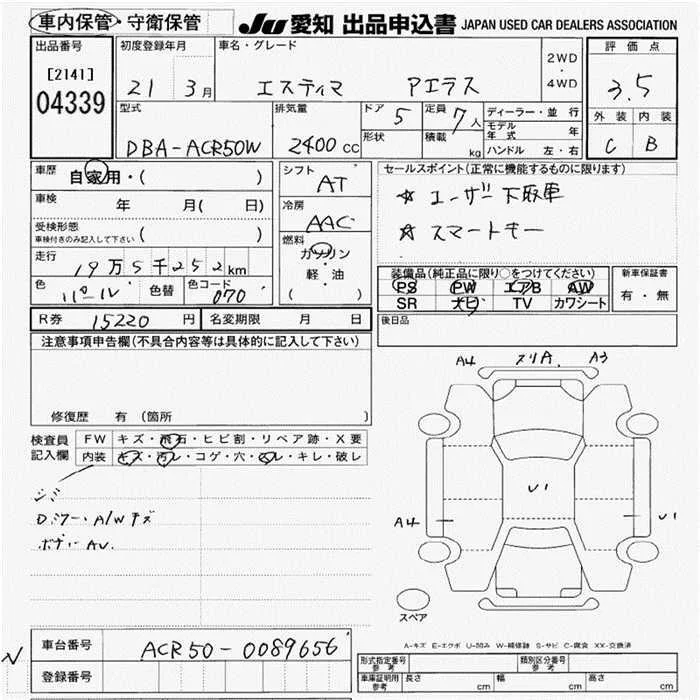 車内保管・守衛保管 JU 愛知 出品申込書 JAPAN USED CAR DEALERS ASSOCIATION
出品番号 初度登録年月 車名・グレード 2WD・4WD 評価点
[2141]
04339 21 3月 エスティマ アエラス 3.5
型式 排気量 ドア 5 定員 7人 ディーラー・並行 外装 内装
DBA-ACR50W 2400cc 形状 積載 kg モデル年式 年 C B
ハンドル 左・右
車歴 自家用・( ) シフト AT セールスポイント(正常に機能するものに限ります)
車検 年 月( 日) 冷房 AAC ☆ ユーザー下取車
受検形態 車検付きのみ記入して下さい ( ) ☆ スマートキー
走行 19万5千252km 燃料 ガソリン・軽・油 ( )
色 パール 色替 色コード 070
装備品(純正品に限り○をつけてください) 新車保証書
PS PW エアB AW 有・無
SR ナビ TV カワシート
R券 15220円 名変期限 月 日 後日品
注意事項申告欄(不具合内容等は具体的に記入して下さい)
修復歴 有 (箇所 )
A4 ヌリA. A3
検査員記入欄 FW キズ・飛石・ヒビ割・リペア跡・X要
内装 キズ・汚レ・コゲ・穴・スレ・キレ・破レ
シミ
Dミラー・A/Wキズ
ボディーAU.
U1
A4 U1
スペア
A-キズ E-エクボ U-凹み W-補修跡 S-サビ C-腐食 XX-交換済
車台番号 ACR50-0089656
登録番号
形式指定番号 参考 類別区分番号 参考
車庫証明用 参考 長さ cm 幅 cm 高さ cm